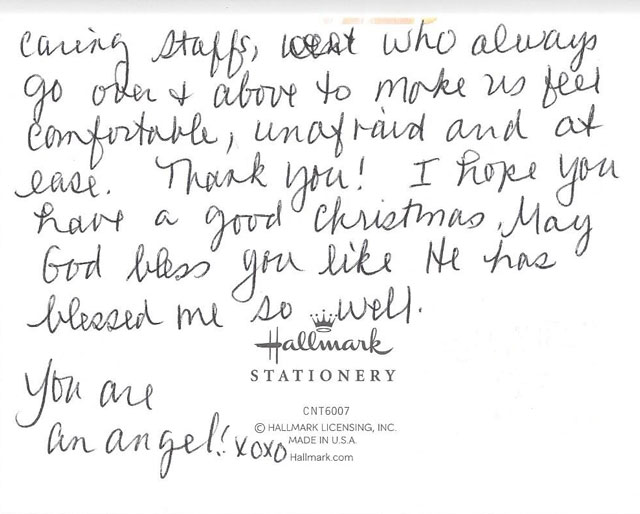 caring staffs, who always
go over & above to make us feel
comfortable, unafraid and at
ease. Thank you! I hope you
have a good Christmas. May
God bless you like He has
blessed me so well.
Hallmark
STATIONERY
You are
an angel! xoxo
CNT6007
© HALLMARK LICENSING, INC.
MADE IN U.S.A.
Hallmark.com